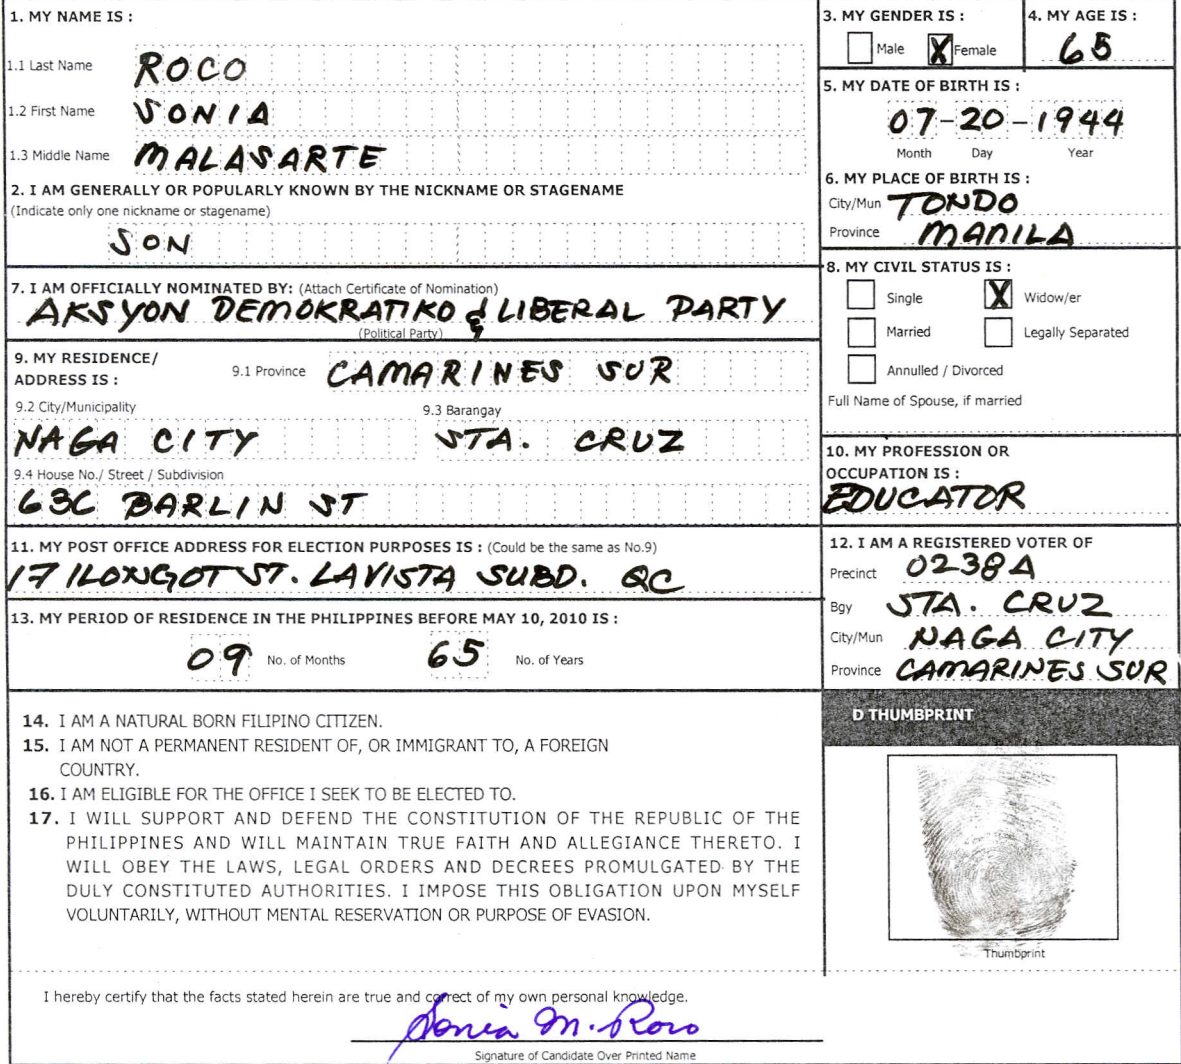 1. MY NAME IS :
1.1 Last Name ROCO
1.2 First Name SONIA
1.3 Middle Name MALASARTE
2. I AM GENERALLY OR POPULARLY KNOWN BY THE NICKNAME OR STAGENAME
(Indicate only one nickname or stagename)
SON
3. MY GENDER IS :
Male X Female
4. MY AGE IS :
65
5. MY DATE OF BIRTH IS :
07-20-1944
Month Day Year
6. MY PLACE OF BIRTH IS :
City/Mun TONDO
Province MANILA
7. I AM OFFICIALLY NOMINATED BY: (Attach Certificate of Nomination)
AKSYON DEMOKRATIKO & LIBERAL PARTY
(Political Party)
8. MY CIVIL STATUS IS :
Single X Widow/er
Married Legally Separated
Annulled / Divorced
Full Name of Spouse, if married
9. MY RESIDENCE/
ADDRESS IS :
9.1 Province CAMARINES SUR
9.2 City/Municipality 9.3 Barangay
NAGA CITY STA. CRUZ
9.4 House No./ Street / Subdivision
63C BARLIN ST
10. MY PROFESSION OR
OCCUPATION IS :
EDUCATOR
11. MY POST OFFICE ADDRESS FOR ELECTION PURPOSES IS : (Could be the same as No.9)
17 ILONGOT ST. LAVISTA SUBD. QC
12. I AM A REGISTERED VOTER OF
Precinct 0238A
Bgy STA. CRUZ
City/Mun NAGA CITY
Province CAMARINES SUR
13. MY PERIOD OF RESIDENCE IN THE PHILIPPINES BEFORE MAY 10, 2010 IS :
09 No. of Months 65 No. of Years
14. I AM A NATURAL BORN FILIPINO CITIZEN.
15. I AM NOT A PERMANENT RESIDENT OF, OR IMMIGRANT TO, A FOREIGN
COUNTRY.
16. I AM ELIGIBLE FOR THE OFFICE I SEEK TO BE ELECTED TO.
17. I WILL SUPPORT AND DEFEND THE CONSTITUTION OF THE REPUBLIC OF THE
PHILIPPINES AND WILL MAINTAIN TRUE FAITH AND ALLEGIANCE THERETO. I
WILL OBEY THE LAWS, LEGAL ORDERS AND DECREES PROMULGATED BY THE
DULY CONSTITUTED AUTHORITIES. I IMPOSE THIS OBLIGATION UPON MYSELF
VOLUNTARILY, WITHOUT MENTAL RESERVATION OR PURPOSE OF EVASION.
D THUMBPRINT
Thumbprint
I hereby certify that the facts stated herein are true and correct of my own personal knowledge.
Sonia M. Roco
Signature of Candidate Over Printed Name